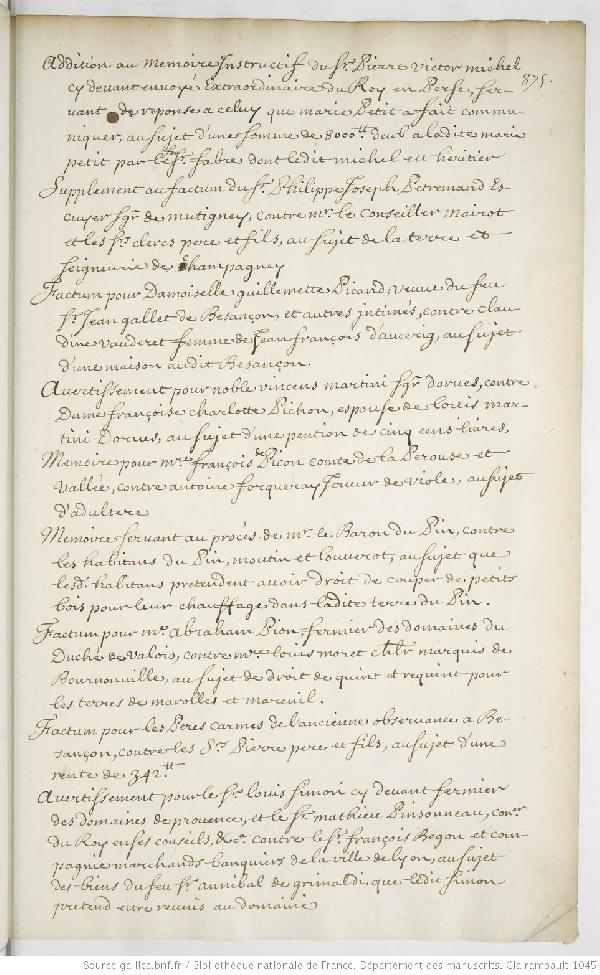 Addition au Memoire Instructif du Sr. Pierre Victor Michel
875.
cy devant envoyé Extraordinaire du Roy en Perse, ser-
vant de reponse a celuy que marie Petit a fait commu-
niquer, au sujet d'une somme de 8000tt. deub a ladite marie
petit par le Sr. fabre dont ledit michel est heritier
Supplement au factum du Sr. Philippe Joseph Petremand Es-
cuyer Sgr. de mutigney, contre mr. le Conseiller mairot
et les Srs. clercs pere et fils, au sujet de la terre et
seigneurie de Champagney
Factum pour Damoiselle guillemette Picard, veuve du feu
Sr. Jean gallet de Besançon, et autres intimés, contre clau-
dine vauderet femme de Jean françois d'aucerig, au sujet
d'une maison audit Besançon.
Avertissement pour noble vincens martini Sgr. dorves, contre
Dame françoise charlotte Pichon, espouse de loüis mar-
tini Dorves, au sujet d'une pention de cinq cens livres,
Memoire pour mre. françois de Picon comte de la Perouse et
vallée, contre antoine forqueray Joueur de viole, au sujet
d'adultere
Memoire servant au procés de mr. le Baron du Pin, contre
les habitans du Pin, moutin et louverot, au sujet que
lesd. habitans pretendent avoir droit de couper de petits
bois pour leur chauffage dans ladite terre du Pin.
Factum pour me. abraham Pion, fermier des domaines du
Duché de valois, contre mre. louis moret chlr. marquis de
Bournonville, au sujet de droit de quint et requint pour
les terres de marolles et mareuil.
Factum pour les Peres carmes de l'ancienne observance a Be-
sançon, contre les Srs. Pierre pere et fils, au sujet d'une
rente de 342.tt
Avertissement pour le Sr. louis Simon cy devant fermier
des domaines de provence, et le Sr. mathieu Pinsonneau, conr.
du Roy en ses conseils, &c. contre le Sr. françois Begon et com-
pagnie marchands-banquiers de la ville de lyon, au sujet
des biens du feu Sr. annibal de grimaldi, que ledit Simon
pretend estre reunis au domaine
Source gallica.bnf.fr / Bibliothèque nationale de France. Département des manuscrits. Clairambault 1045